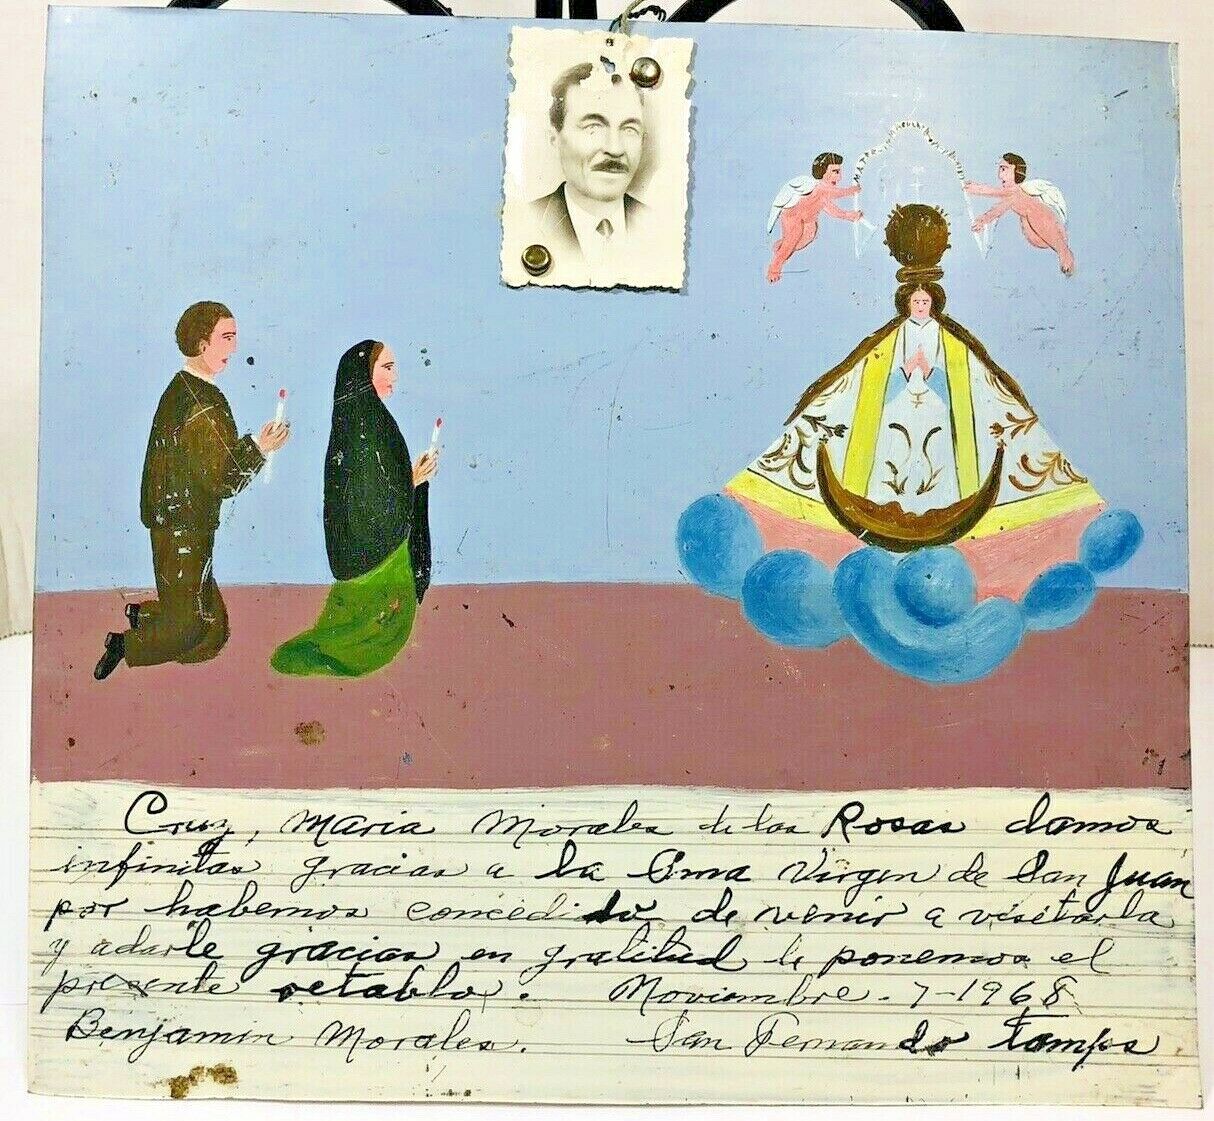 Cruz, Maria Morales de las Rosas damos
infinitas gracias a la Sma Virgen de San Juan
por habernos concedido de venir a visitarla
y adarle gracias en gratitud le ponemos el
presente retablo. Noviembre. 7-1968
Benjamin Morales. San Fernando tamps